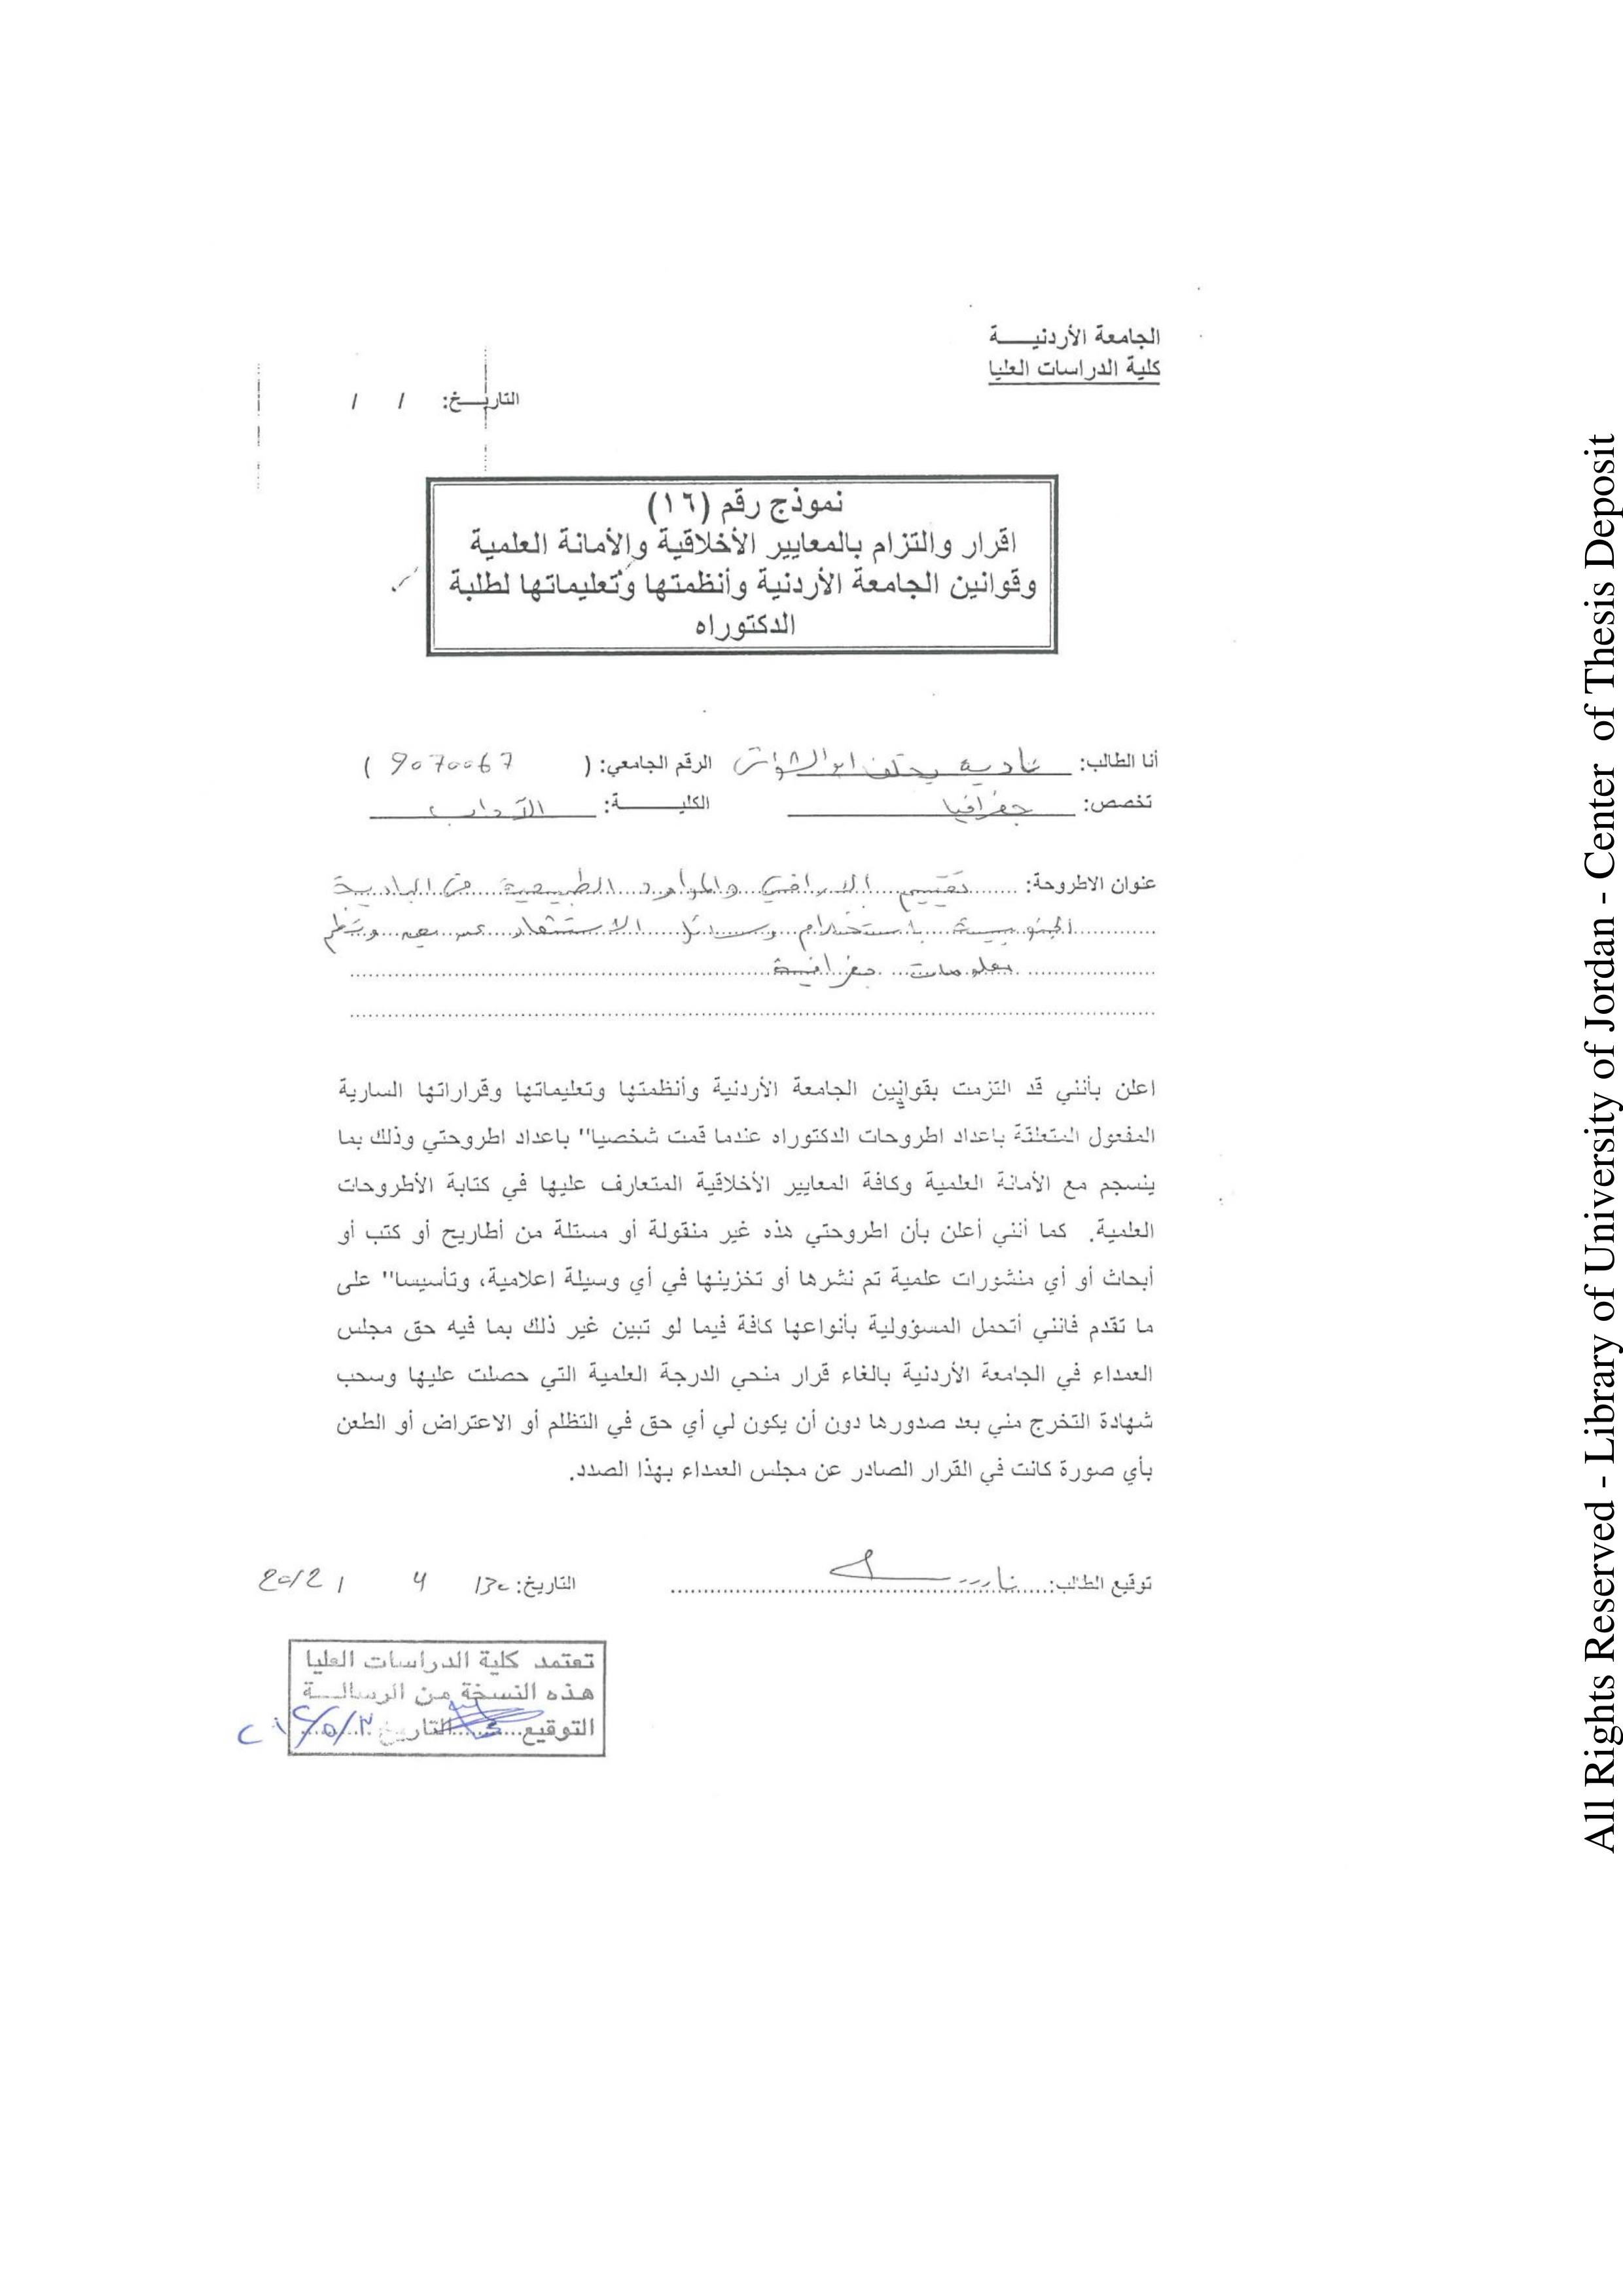 الجامعة الأردنيـــــة
كلية الدراسات العليا
التاريـــخ: / /
نموذج رقم (١٦)
اقرار والتزام بالمعايير الأخلاقية والأمانة العلمية
وقوانين الجامعة الأردنية وأنظمتها وتعليماتها لطلبة
الدكتوراه
أنا الطالب: نادية يخلف ابو الرقم الجامعي: ( 9070067 )
تخصص: جغرافيا الكليـــــــة: الآداب
عنوان الاطروحة: تقييم الاراضي والموارد الطبيعية في البادية
الجنوبية باستخدام وسائل الاستشعار عن بعد ونظم
معلومات جغرافية
اعلن بأنني قد التزمت بقوانين الجامعة الأردنية وأنظمتها وتعليماتها وقراراتها السارية
المفعول المتعلقة باعداد اطروحات الدكتوراه عندما قمت شخصيا" باعداد اطروحتي وذلك بما
ينسجم مع الأمانة العلمية وكافة المعايير الأخلاقية المتعارف عليها في كتابة الأطروحات
العلمية. كما أنني أعلن بأن اطروحتي هذه غير منقولة أو مستلة من أطاريح أو كتب أو
أبحاث أو أي منشورات علمية تم نشرها أو تخزينها في أي وسيلة اعلامية، وتأسيسا" على
ما تقدم فانني أتحمل المسؤولية بأنواعها كافة فيما لو تبين غير ذلك بما فيه حق مجلس
العمداء في الجامعة الأردنية بالغاء قرار منحي الدرجة العلمية التي حصلت عليها وسحب
شهادة التخرج مني بعد صدورها دون أن يكون لي أي حق في التظلم أو الاعتراض أو الطعن
بأي صورة كانت في القرار الصادر عن مجلس العمداء بهذا الصدد.
توقيع الطالب: التاريخ: 30/ 4 / 2012
تعتمد كلية الدراسات العليا
هذه النسخة من الرسالـــة
التوقيع التاريخ
All Rights Reserved - Library of University of Jordan - Center of Thesis Deposit